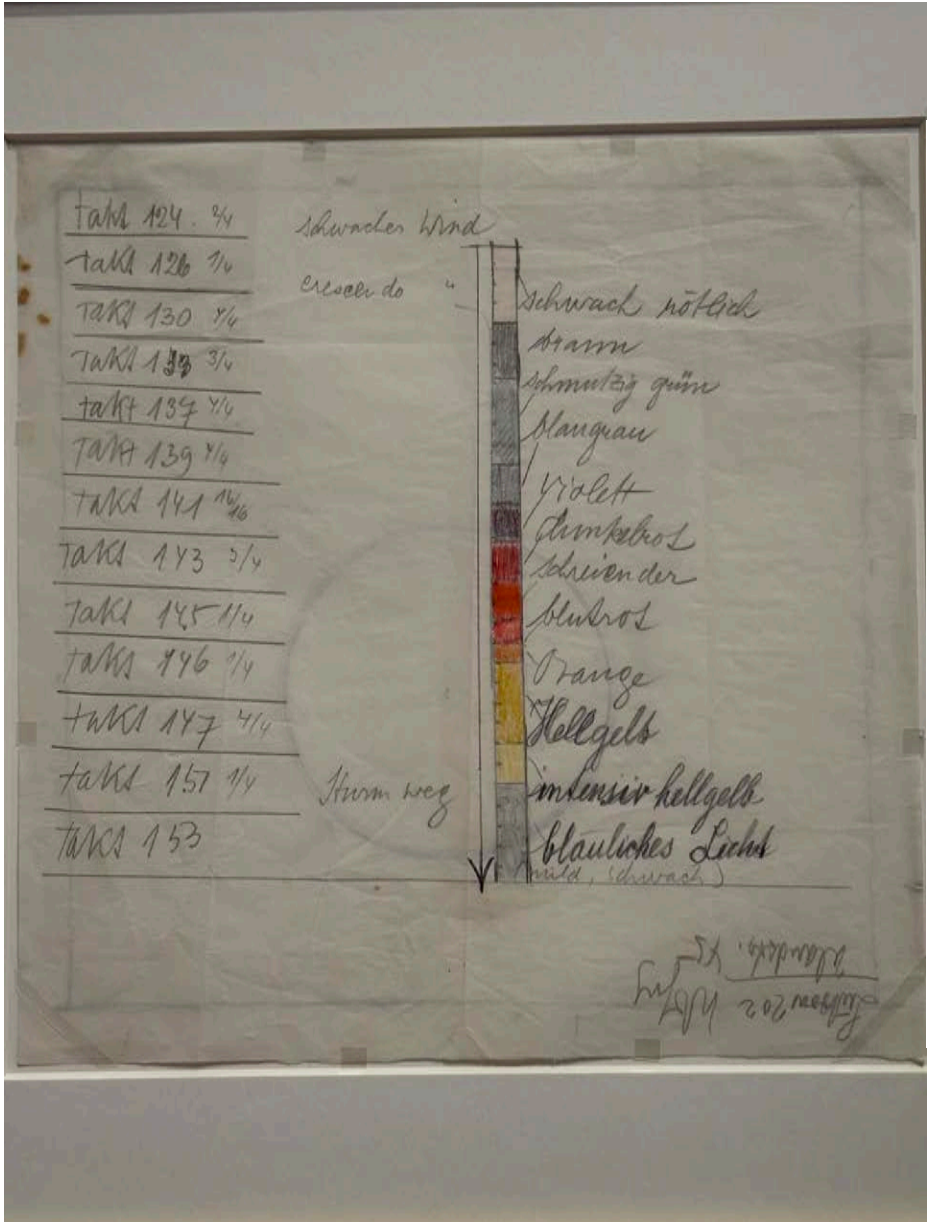 Takt 124. 2/4
Takt 126 1/4
Takt 130 4/4
Takt 133 3/4
Takt 137 4/4
Takt 139 4/4
Takt 141 16/16
Takt 143 3/4
Takt 145 1/4
Takt 146 1/4
Takt 147 4/4
Takt 151 1/4
Takt 153
schwacher Wind
crescendo "
Sturm weg
schwach rötlich
braun
schmutzig grün
blaugrau
violett
dunkelrot
schreiender
blutrot
Orange
Hellgelb
intensiv hellgelb
bläuliches Licht
mild, schwach)
Lützow 202